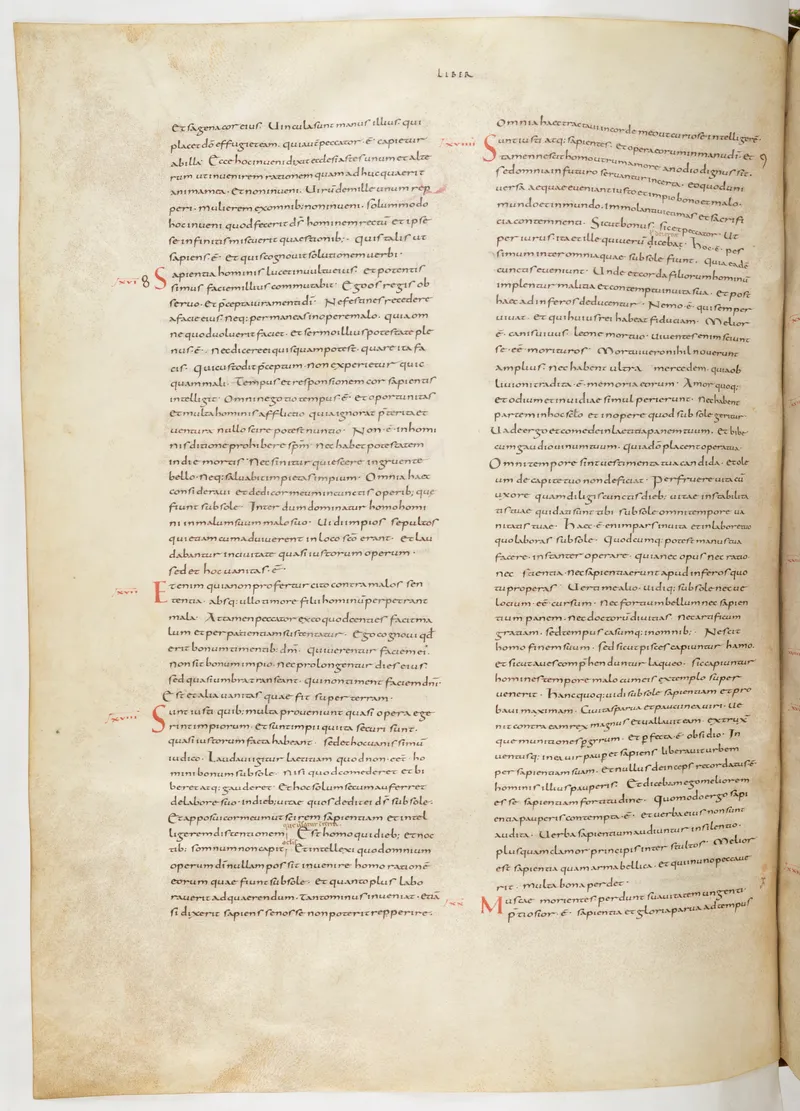 LIBER
et sagena cor eius. Uincula sunt manus illius. qui
placet dō effugiet eam. qui aut̄ peccator ē. capietur
ab illa. Ecce hoc inueni dixit ecclesiastes unum et alte
rum ut inuenirem rationem quam adhuc quaerit
anima mea. et non inueni. Uirū de mille unum rep
peri. mulierem ex omnib; non inueni. solummodo
hoc inueni quod fecerit d̄s hominem rectū et ipse
se infinitis miscuerit quaestionib;. quis talis ut
sapiens ē. et quis cognouit solutionem uerbi.
xvi 8 Sapientia hominis lucet in uultu eius. et potentis
simus faciem illius commutabit. Ego os regis ob
seruo. et p̄cepta iuramenti dī. Ne festines recedere
a facie eius. neq; permaneas in opere malo. quia om
ne quod uoluerit faciet. et sermo illius potestate ple
nus ē. nec dicere ei quisquam potest. quare ita fa
cis. Qui custodit p̄ceptum. non experietur quic
quam mali. Tempus et responsionem cor sapientis
intellegit. Omni negotio tempus ē. et oportunitas
et multa hominis afflictio. quia ignorat p̄terita et
uentura nullo scire potest nuntio. Non ē in homi
nis dicione prohibere sp̄m. nec habet potestatem
in die mortis. Nec sinitur quiescere ingruente
bello. neq; saluabit impietas impium. Omnia haec
consideraui et dedi cor meum in cunctis operib; quę
fiunt sub sole. Inter dum dominatur homo homi
ni in malum suum malo suo. Uidi impios sepultos
qui etiam cum aduiuerent in loco s̄co erant. et lau
dabantur in ciuitate quasi iustorum operum.
sed et hoc uanitas ē.
xvii Etenim quia non profertur cito contra malos sen
tentia. absq; ullo timore filii hominū perpetrant
mala. Attamen peccator ex eo quod centies facit ma
lum et per patientiam sustentatur. Ego cognoui qđ
erit bonum timentib; dm̄. qui uerentur faciem ei'.
non sit bonum impio. nec prolongentur dies eius
sed quasi umbra transeant. qui non timent faciem dnī.
Est et alia uanitas quae fit super terram.
xviii Sunt iusti. quib; multa proueniunt quasi opera ege
rint impiorum. et sunt impii qui ita securi sunt.
quasi iustorum facta habeant. sed et hoc uanissimū
iudico. Laudaui igitur laetitiam quod non eēt ho
mini bonum sub sole. nisi quod comederet et bi
beret atq; gauderet. et hoc solum secum auferret
de labore suo. in dieb; uitae quos dedit ei d̄s sub sole.
Et apposui cor meum ut scirem sapientiam et intel
ligerem distentionem Est homo qui dieb; et noc
tib; somnum non capit Et intellexi quod omnium
operum dī nullam possit inuenire homo rationē
eorum quae fiunt sub sole. et quanto plus labo
rauerit ad quaerendum. tanto minus inueniat. etiā
si dixerit sapiens se nosse non poterit repperire.
Omnia haec tractaui in corde meo ut curiose intelligerē.
xviiii Sunt iusti atq; sapientes. et opera eorum in manu dī. et 9
tamen nescit homo utrum amore an odio dignus sit.
sed omnia in futuro seruantur incerta. eo quod uni
uersa aeque eueniant iusto et impio bono et malo.
mundo et inmundo. Immolanti uictimas et sacrifi
cia contemnenti. Sicut bonus. sic et peccator. Ut
periurus. ita et ille qui uerū dicebat. Hoc ē. pes
simum inter omnia quae sub sole fiunt. quia eadē
cunctis eueniunt. Unde et corda filiorum hominū
implentur malitia et contemptu in uita sua. et post
haec ad inferos deducentur. Nemo ē. qui semper
uiuat. et qui huius rei habeat fiduciam. Melior
ē. canis uiuus leone mortuo. Uiuentes enim sciunt
se eē. morituros Mortui uero nihil nouerunt
amplius. nec habent ultra mercedem. quia ob
liuioni tradita ē memoria eorum. Amor quoq;
et odium et inuidiae simul perierunt. nec habent
partem in hoc sēlo et in opere quod sub sole geritur.
Uade ergo et comede in laetitia panem tuum. et bibe
cum gaudio uinum tuum. quia dō placent opera tua.
Omni tempore sint uestimenta tua candida. et ole
um de capite tuo non deficiat. Perfruere uita cū
uxore quam diligis cunctis dieb; uitae instabilita
tis tuae qui dati sunt tibi sub sole omni tempore ua
nitatis tuae. Haec ē enim pars in uita et in labore tuo
quo laboras sub sole. Quodcumq; potest manus tua
facere. instanter operare. quia nec opus nec ratio
nec scientia. nec sapientia erunt apud inferos quo
tu properas. Uerti me alio. uidiq; sub sole nec ue
locium. eē cursum. nec fortium bellum nec sapien
tium panem. nec doctorū diuitias. nec artificum
gratiam. sed tempus casumq; in omnib;. Nescit
homo finem suum. sed sicut pisces capiuntur hamo.
et sicut aues comp̄henduntur laqueo. sic capiuntur
homines tempore malo cum eis extemplo super
uenerit. Hanc quoq; uidi sub sole sapientiam et pro
baui maximam. Ciuitas parua et pauci in ea uiri. ue
nit contra eam rex magnus et uallauit eam. extruxit
que munitiones p gyrum. et p̄fecta ē. obsidio. In
uentusq; in ea uir pauper et sapiens liberauit urbem
per sapientiam suam. et nullus deinceps recordatus ē.
hominis illius pauperis. Et dicebam ego meliorem
esse sapientiam fortitudine. Quomodo ergo sapi
entia pauperis contempta ē. et uerba eius non sunt
audita. Uerba sapientium audiuntur in silentio.
plus quam clamor principis inter stultos. Melior
est sapientia quam arma bellica. et qui in uno peccaue
rit. multa bona perdet.
xx Muscae morientes perdunt suauitatem ungenti.
p̄tiosior. ē. sapientia et gloria parua ad tempus